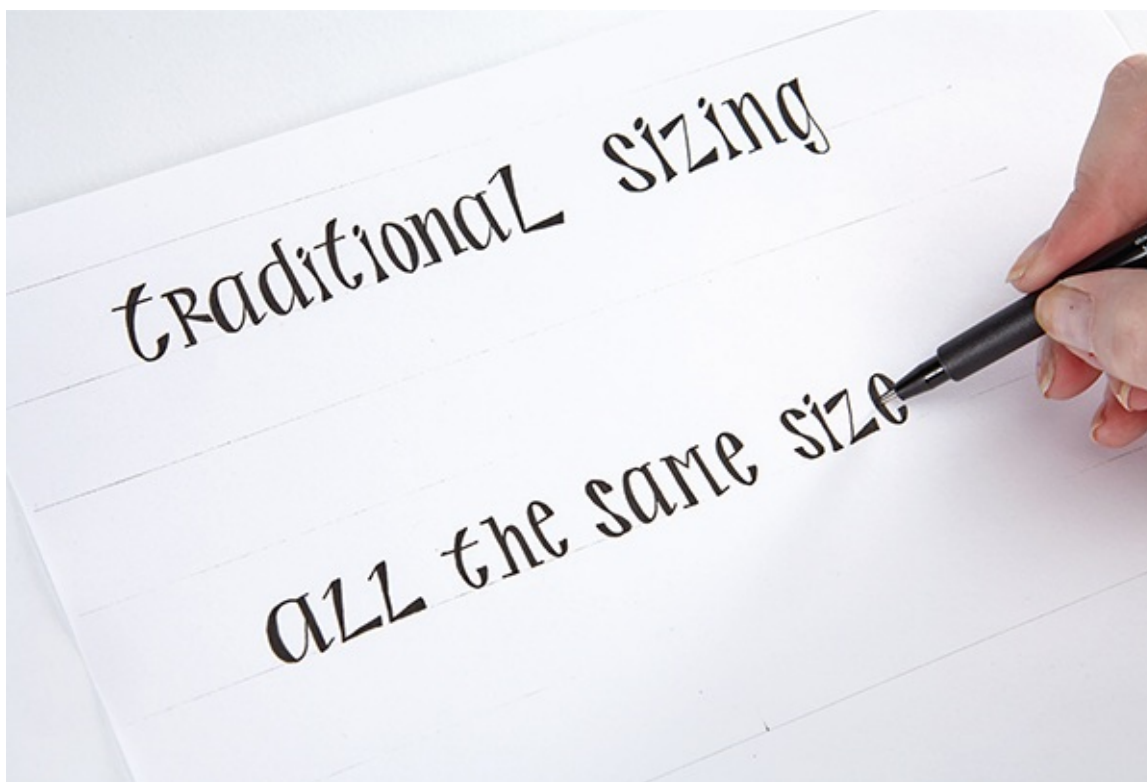 traditional sizing
all the same size